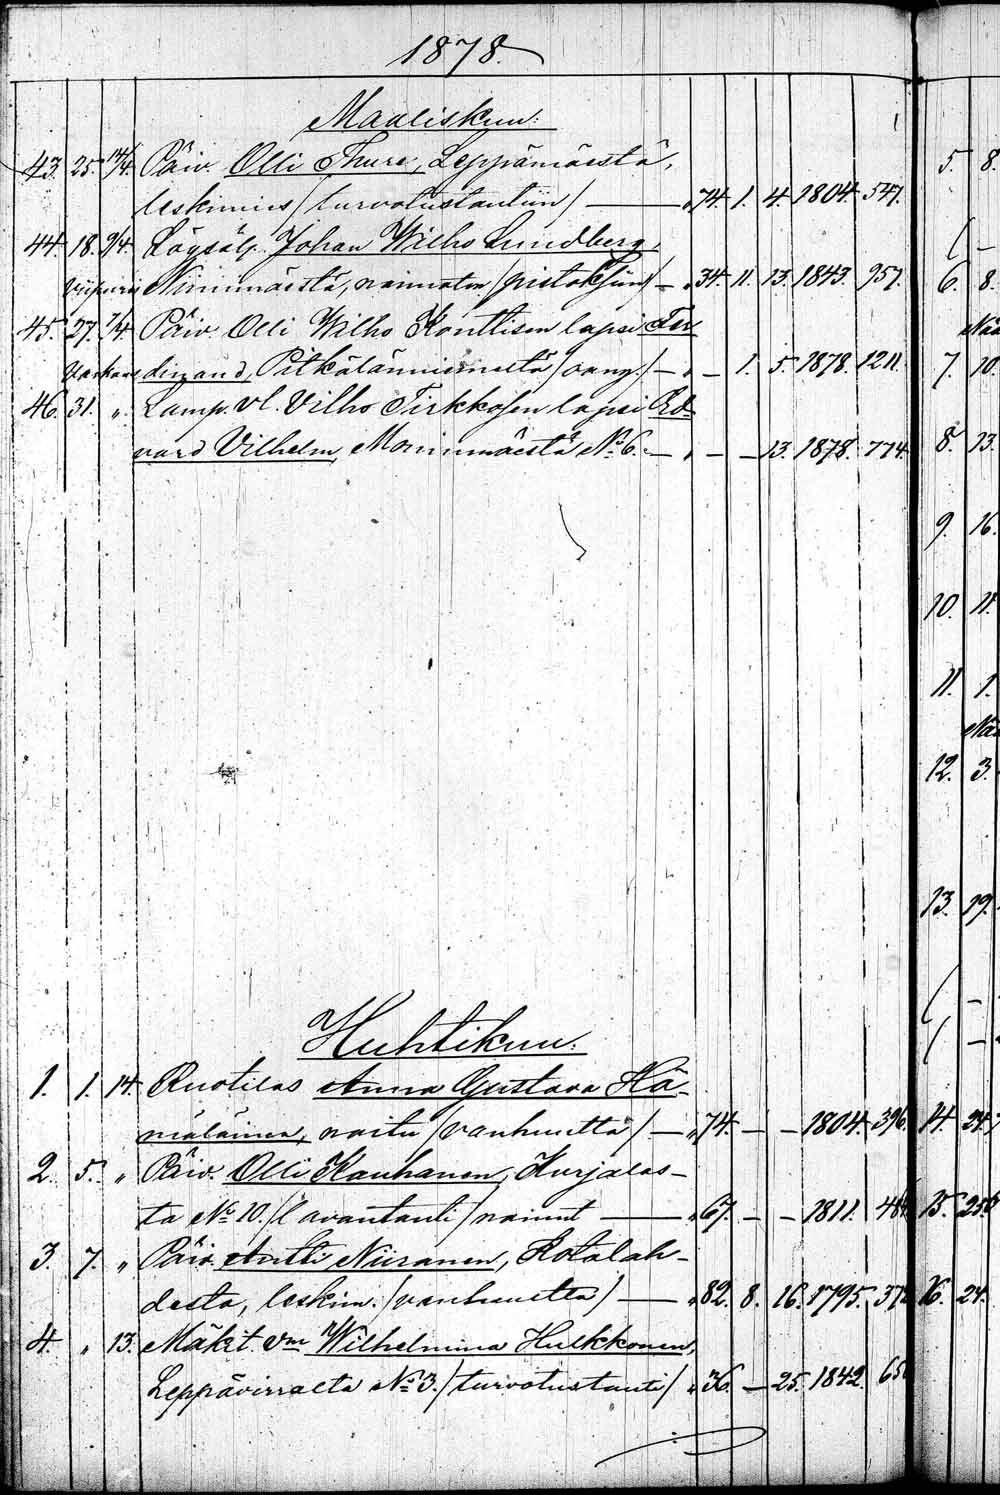 1878.
Maaliskuu:
43. 25. 14/4. Päiv. Olli Thure, Leppämäestä,
leskimies /turvotustautiin/ — „ 74. 1. 4. 1804. 547.
44. 18. 9/4. Johan Wilho Lundberg,
Viipurii Nimimäestä, naimaton /pistoksiin/ — „ 34. 11. 13. 1843. 957.
45. 27. 7/4. Päiv. Olli Wilho Konttisen lapsi Fer
Varkaus dinand, Pitkälänniemeltä / / — „ — 1. 5. 1878. 1211.
46. 31. „ Lamp. vl. Vilho Tirkkosen lapsi Ed-
vard Vilhelm, Moninmäestä No 6. — „ — — 13. 1878. 774.
Huhtikuu:
1. 1. 14. Ruotilas Anna Gustava Hä-
mäläinen, naitu /vanhuutta/ — „ 74. — — 1804. 396.
2. 5. „ Päiv. Olli Kauhanen, Kurjalas-
ta No 10. /lavantauti/ nainut — „ 67. — — 1811.
3. 7. „ Päiv. Antti Niiranen, Kotalah-
desta, leskim. /vanhuutta/ — „ 82. 8. 16. 1795.
4. „ 13. Mäkit. vm Wilhelmina Hulkkonen,
Leppävirralta No 3. /turvotustauti/ „ 36. — 25. 1842.
5. 8.
6. 8.
7. 10.
8. 13.
9. 16.
10. 11.
11. 1.
12. 3.
13. 19.
14. 24.
15. 25.
16. 24.